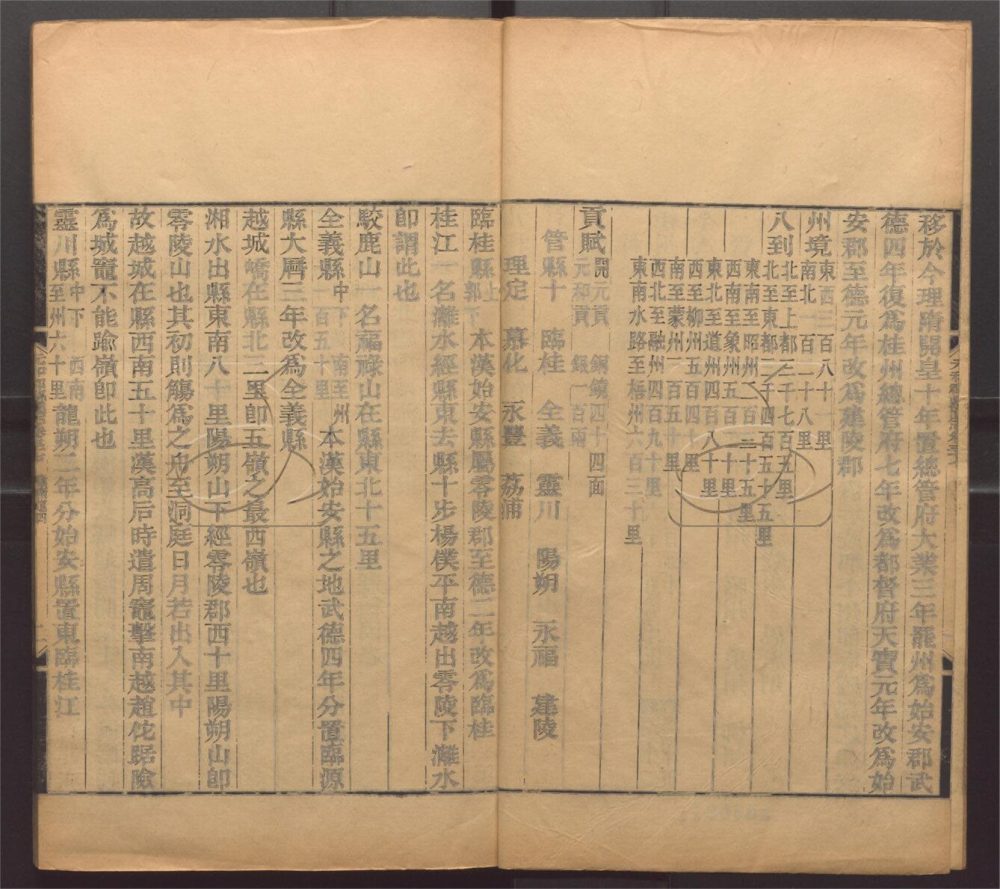 移於今理隋開皇十年置總管府大業三年罷州爲始安郡武
德四年復爲桂州總管府七年改爲都督府天寶元年改爲始
安郡至德元年改爲建陵郡
州境東西三百八十一里
南北一百一十八里
八到北至上都三千七百五里
北至東都二千四百五十五里
東南至昭州二百二十五里
西南至象州五百里
東北至道州四百八十里
西至柳州五百四里
南至蒙州一百五十里
西北至融州四百九里
東南水路至梧州六百三十里
貢賦開元貢 銅鏡四十四面
元和貢 銀一百兩
管縣十 臨桂 全義 靈川 陽朔 永福 建陵
理定 慕化 永豐 荔浦
臨桂縣上郭下 本漢始安縣屬零陵郡至德二年改爲臨桂
桂江一名灕水經縣東去縣十步楊僕平南越出零陵下灕水
即謂此也
駮鹿山一名福祿山在縣東北十五里
全義縣中下 南至州一百五十里 本漢始安縣之地武德四年分置臨源
縣大曆三年改爲全義縣
越城嶠在縣北三里即五嶺之最西嶺也
湘水出縣東南八十里陽朔山下經零陵郡西十里陽朔山即
零陵山也其初則觴爲之舟至洞庭日月若出入其中
故越城在縣西南五十里漢高后時遣周竈擊南越趙佗踞險
爲城竈不能踰嶺即此也
靈川縣中下 西南至州六十里 龍朔二年分始安縣置東臨桂江